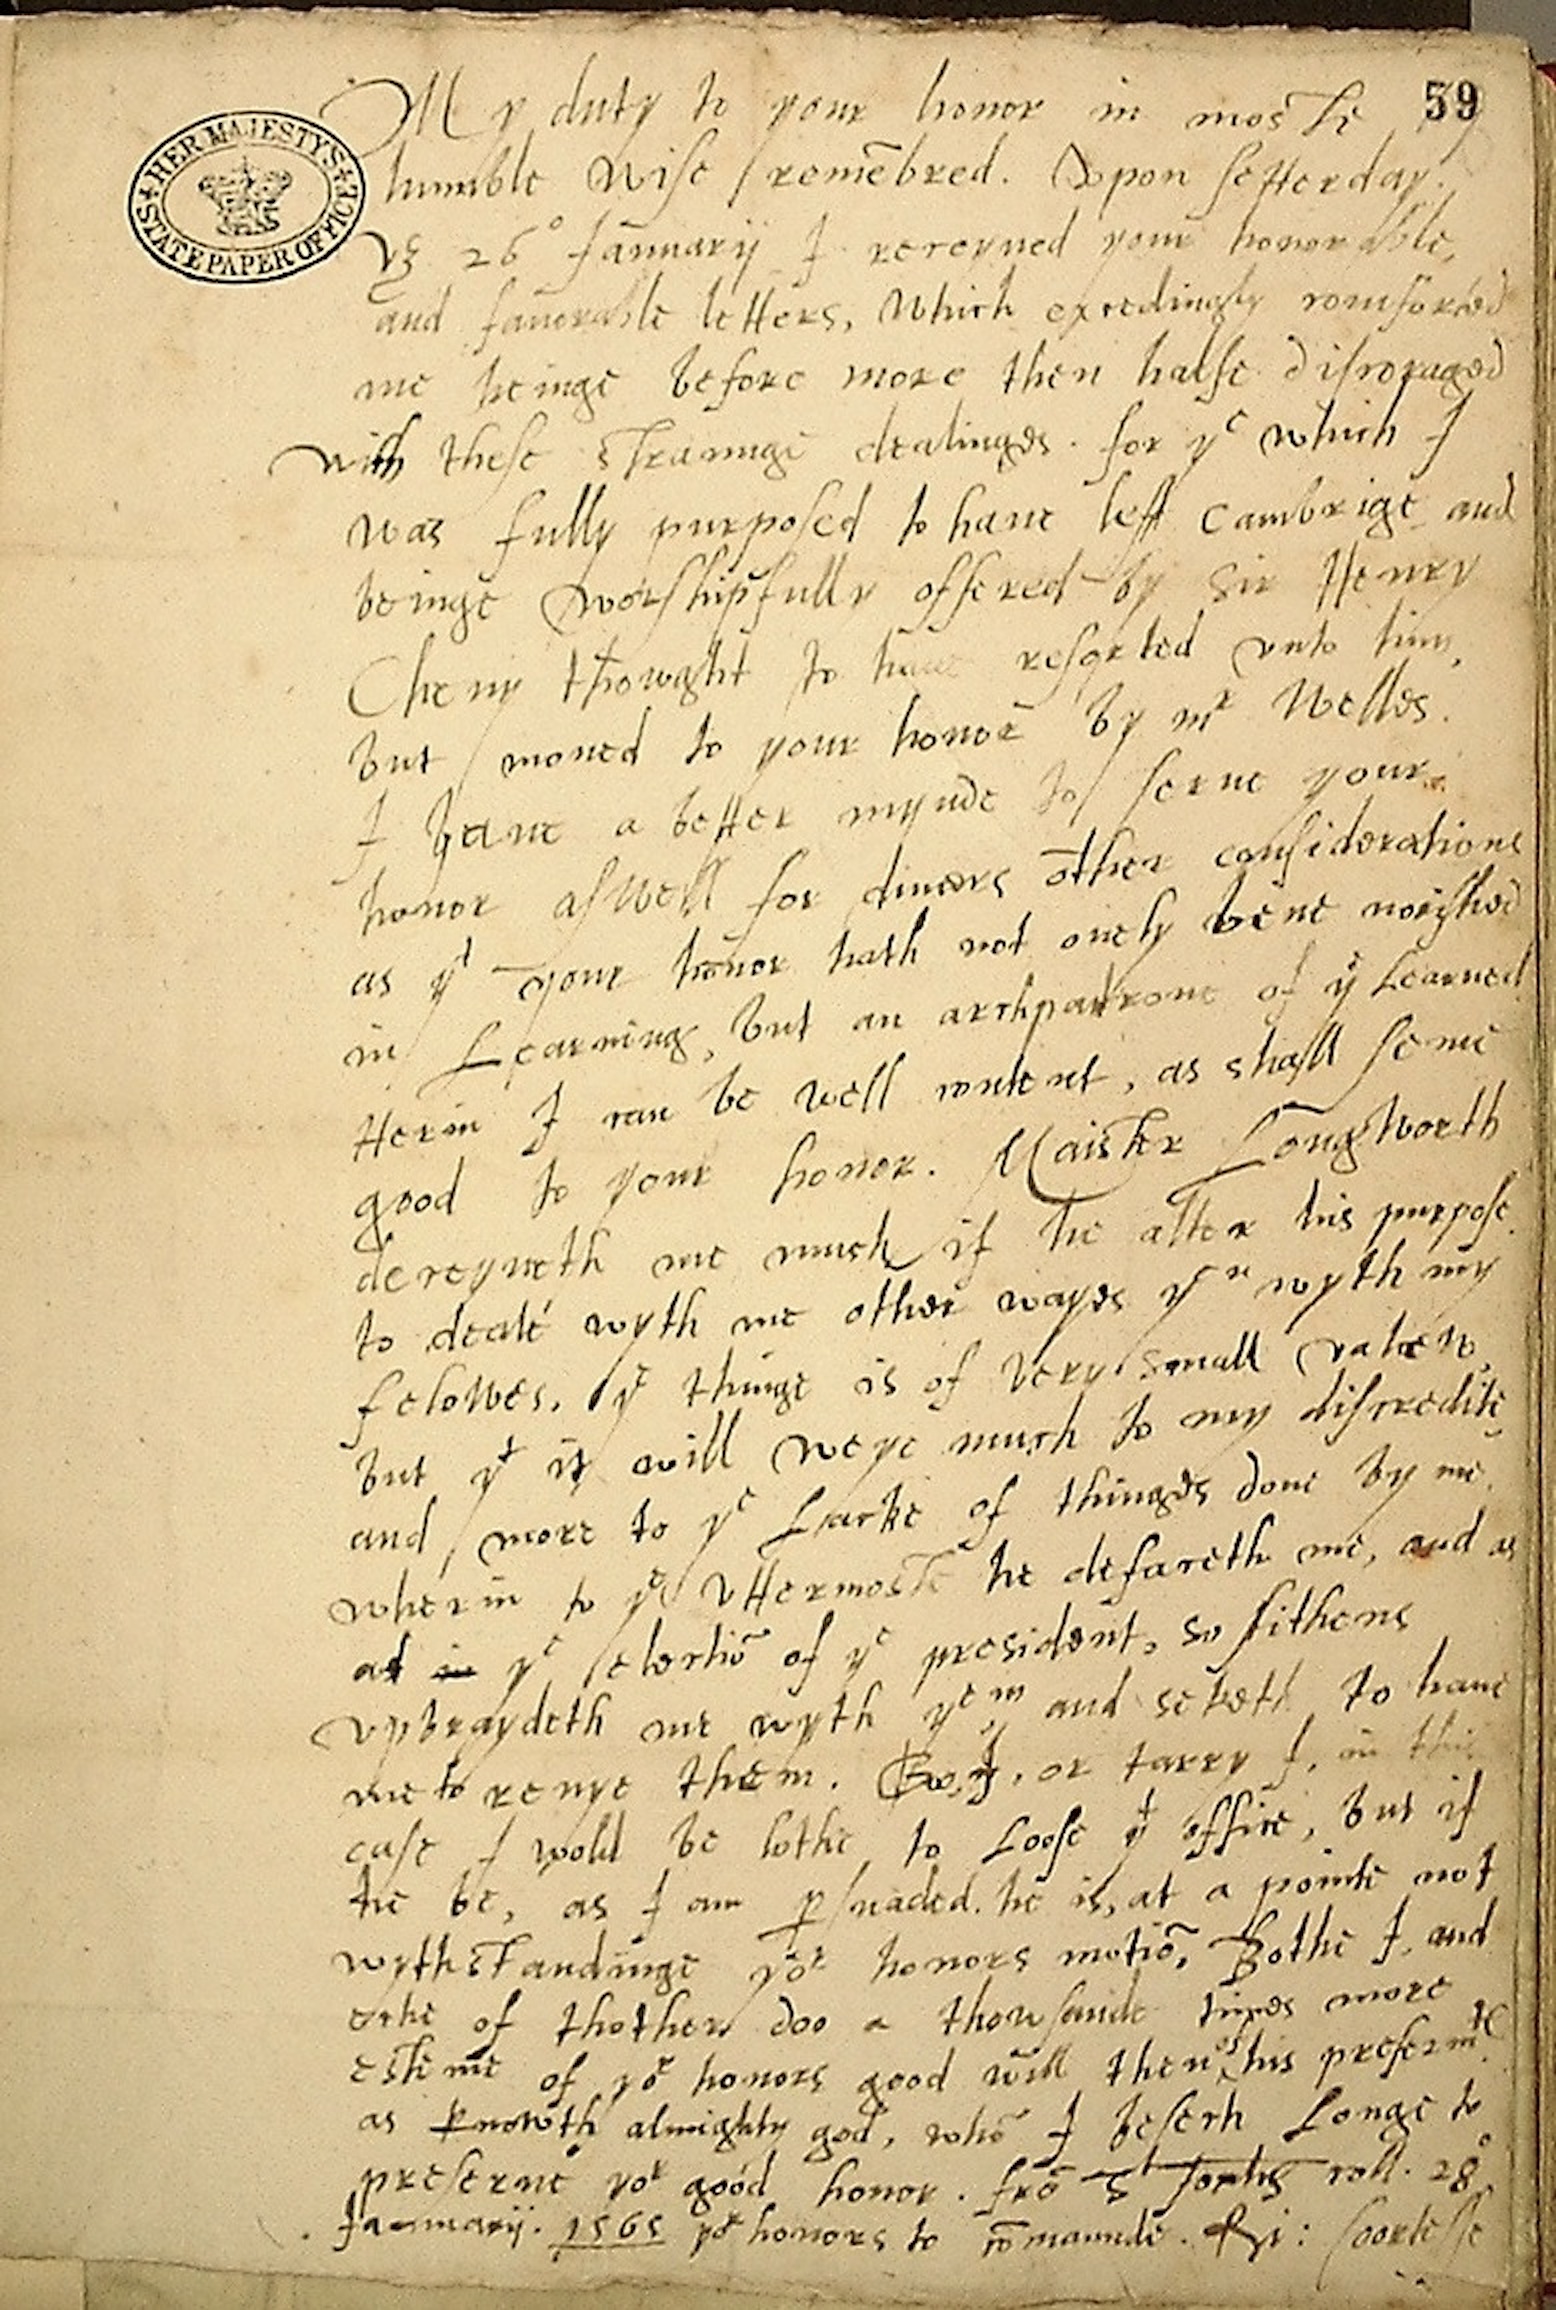 59
HER MAJESTYS STATE PAPER OFFICE
My duty to your honor in moste
humble wise remēbred. Vpon setterday
26° Januarij I receyued your honorable,
and fauorable letters, which excedingly comforted
me beinge before more then halfe discoraged
with these straunge dealinges. for yᵉ which I
was fully purposed to haue left Cambrige and
beinge worshipfully offered by Sir Henry
Cheny thowght to haue resorted vnto him,
but moued to your honor by mʳ Welles.
I haue a better mynde to serue your
honor aswell for diuers other considerations
as yᵗ your honor hath not onely bene
in Learning, but an archpatrone of yᵉ Learned
Herin I can be well content, as shall seme
good to your honor. Maister Longworth
deceyueth me much if he alter his purpose
to deale wyth me other wayes yⁿ wyth my
felowes. yᵉ thinge is of very small valew
but yᵗ it will weye much to my discredite,
and more to yᵉ Larke of thinges done by me.
wherin to yᵉ vttermoste he defaceth me, and as
at yᵉ electiō of yᵉ president, so sithens
vpbraydeth me wyth yᵉᵐ and seketh to haue
me to renye them. Go I, or tarry I, in this
case I wold be lothe to Loose yᵗ office, but if
he be, as I am ꝑsuaded he is, at a pointe not
wythstandinge yoʳ honors motiō, Bothe I, and
eche of thother doo a thowsande times more
esteme of yoʳ honors good will then of his preferm̄ᵗᵉ
as knowth almighty god, whō I besech Longe to
preserue yoʳ good honor. frō Sᵗ Johns coll. 28°
Januarij. 1565 yoʳ honors to cōmaunde. Ri: Coortesse